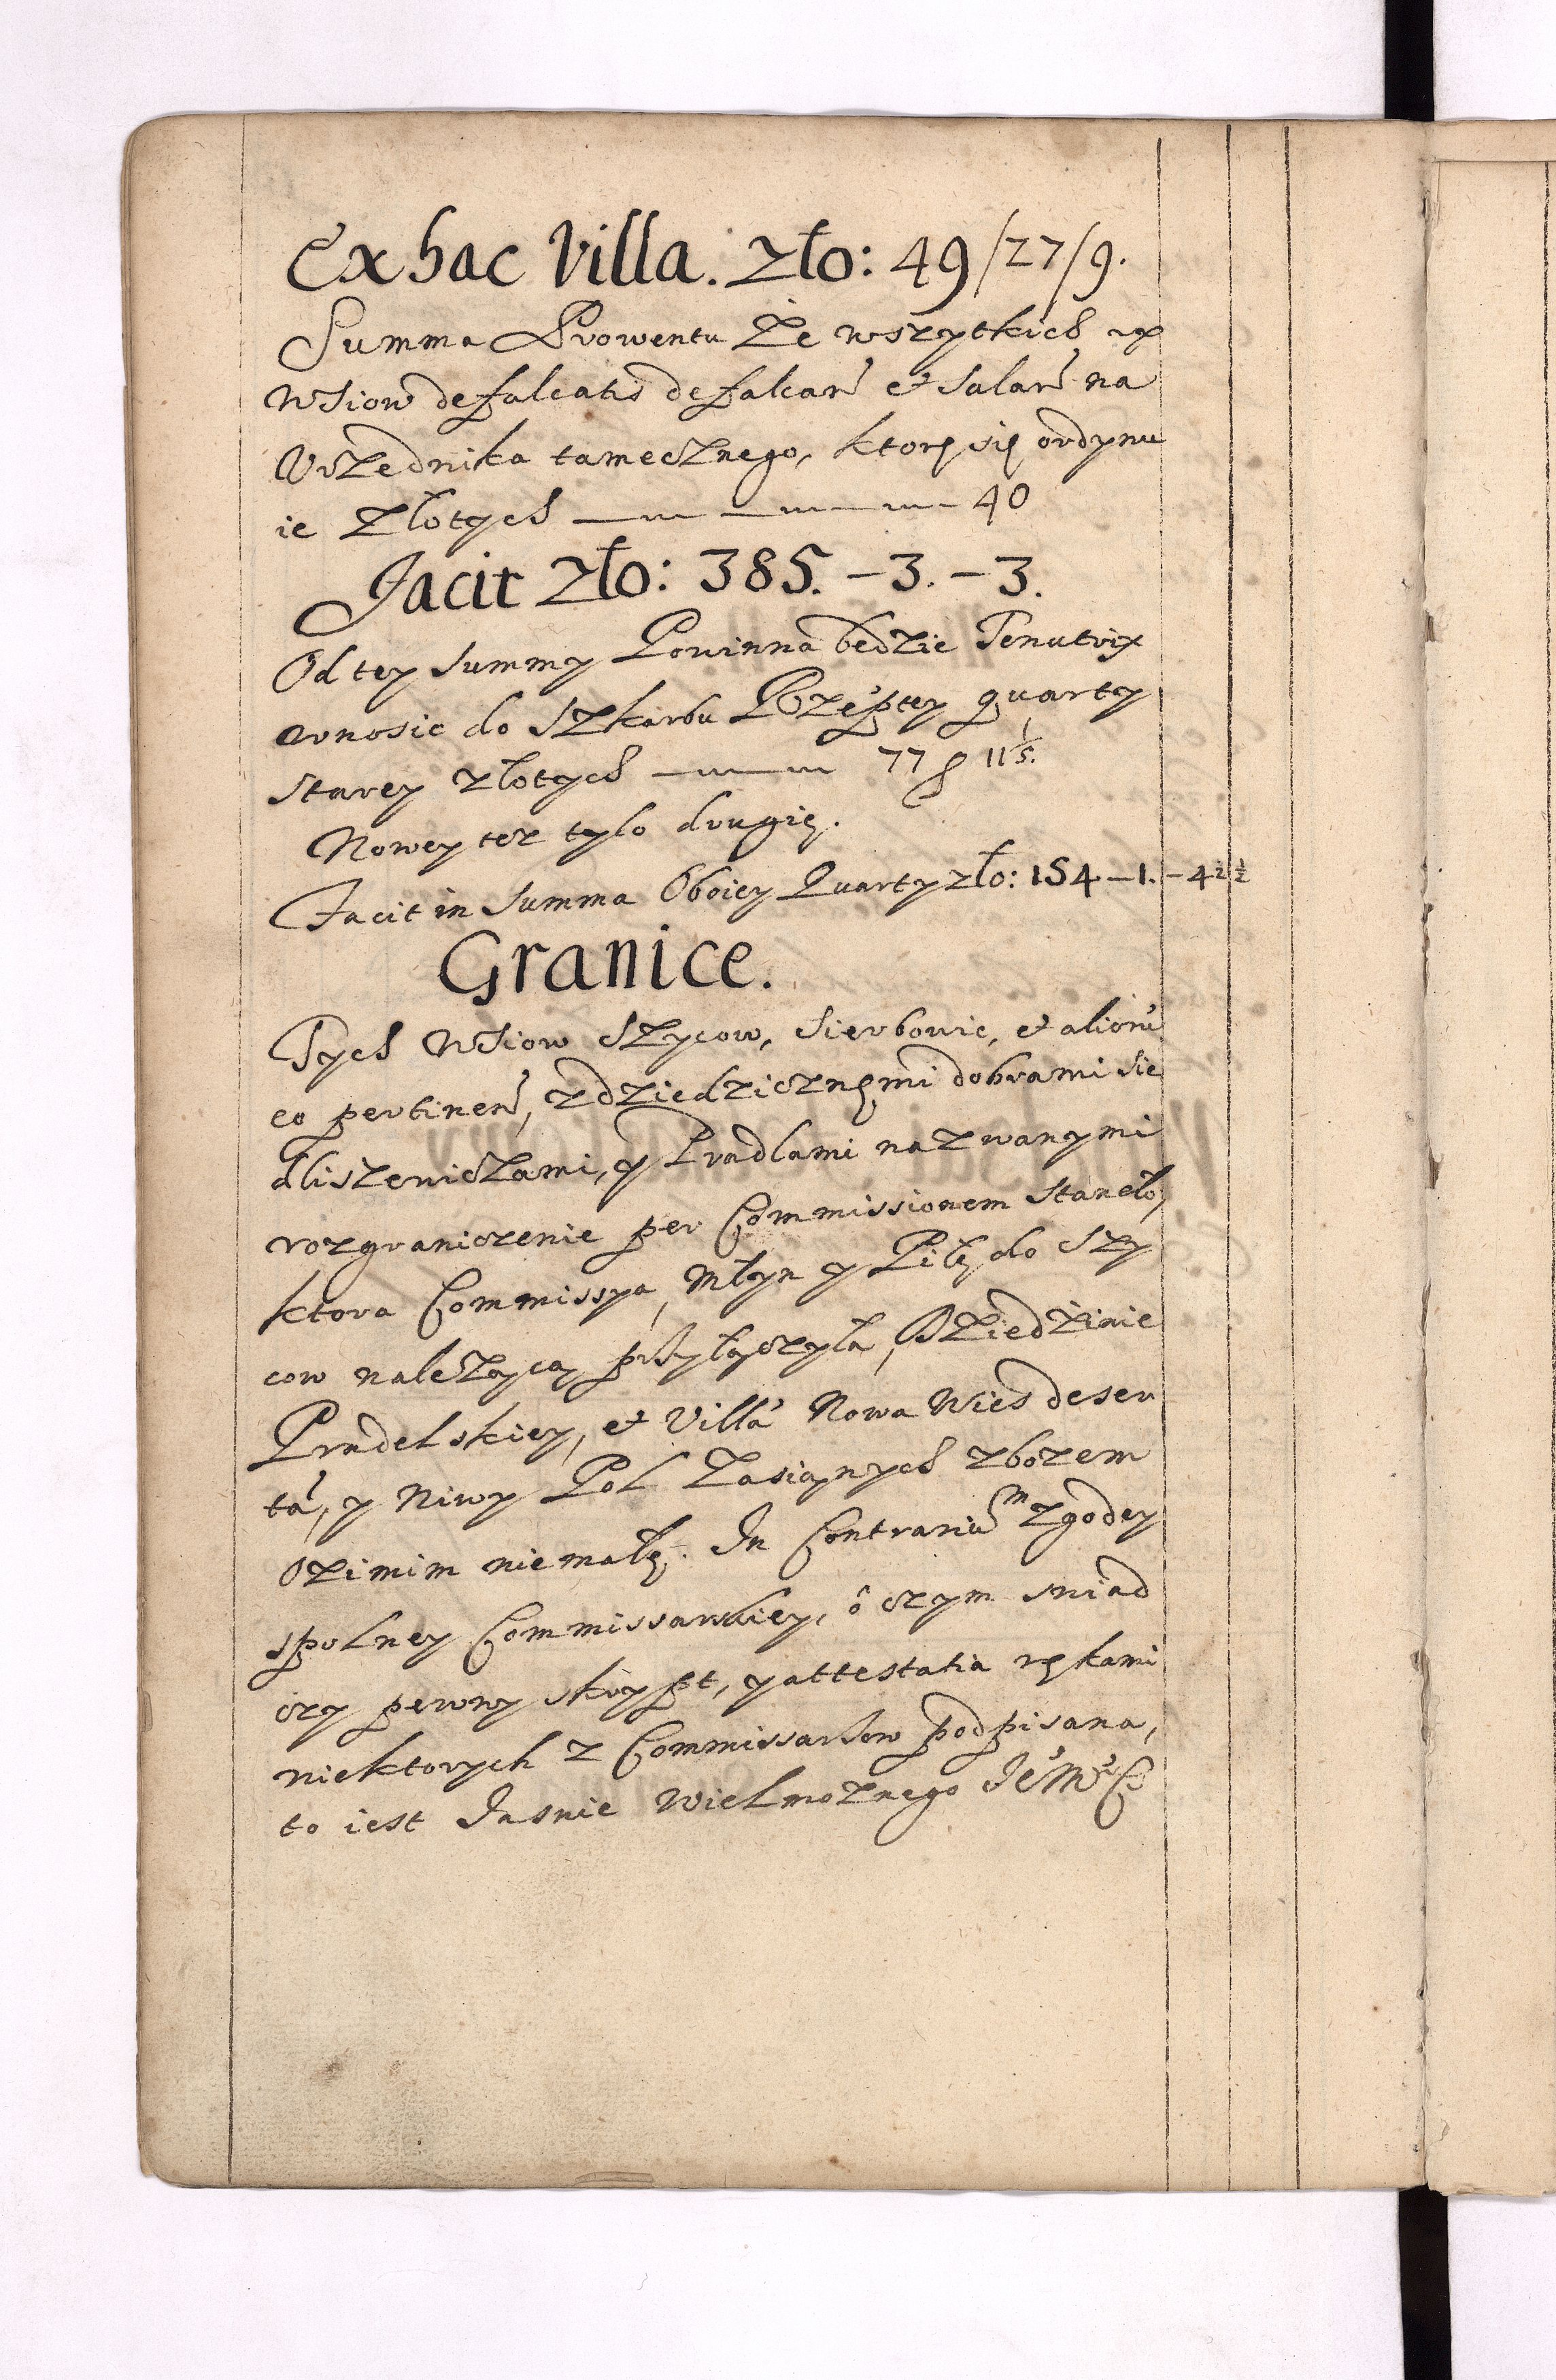 Ex hac Villa. zło: 49/27/9.
Summa Prowentu Ze wszytkich
Wsiow defalcatis defalcań et salarń na
Vrzednika tamecznego, ktorę się ordynu
ie Złotych 40
Facit zło: 385. - 3. - 3.
Od tey summy Powinna będzie Tenutrix
wnosic do Szkarbu Rzeptey quarty
starey złotych 77 g 11 1/5.
Nowey tez tylo drugię.
Facit in summa Oboiey Quarty zło: 154 - 1. - 4
Granice.
Tych Wsiow Szycow, Sierbowic, et alioru
eo pertineń, z dziedzicznęmi dobrami Sie
dliszowiczami, y Pradlami nazwanymi
rozgraniczenie per Commissionem staneło,
ktora Commissya, Młyn y Piłę do Szy
cow należący przyłączyła, Dziedzinie
Prudelskiey, et Villa Nowa Wies deser
ta, y Niwy Pol Zasianych zbozem
Ozimim niemałę. In Contrariu zgodey
spolney Commissarskiey, ô czym swiad
czy pewny skrypt, y attestatia rękami
niektorych z Commissarzow podpisana,
to iest Jasnie Wielmoznego